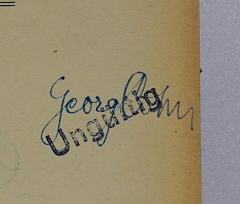 Georg
Ungültig